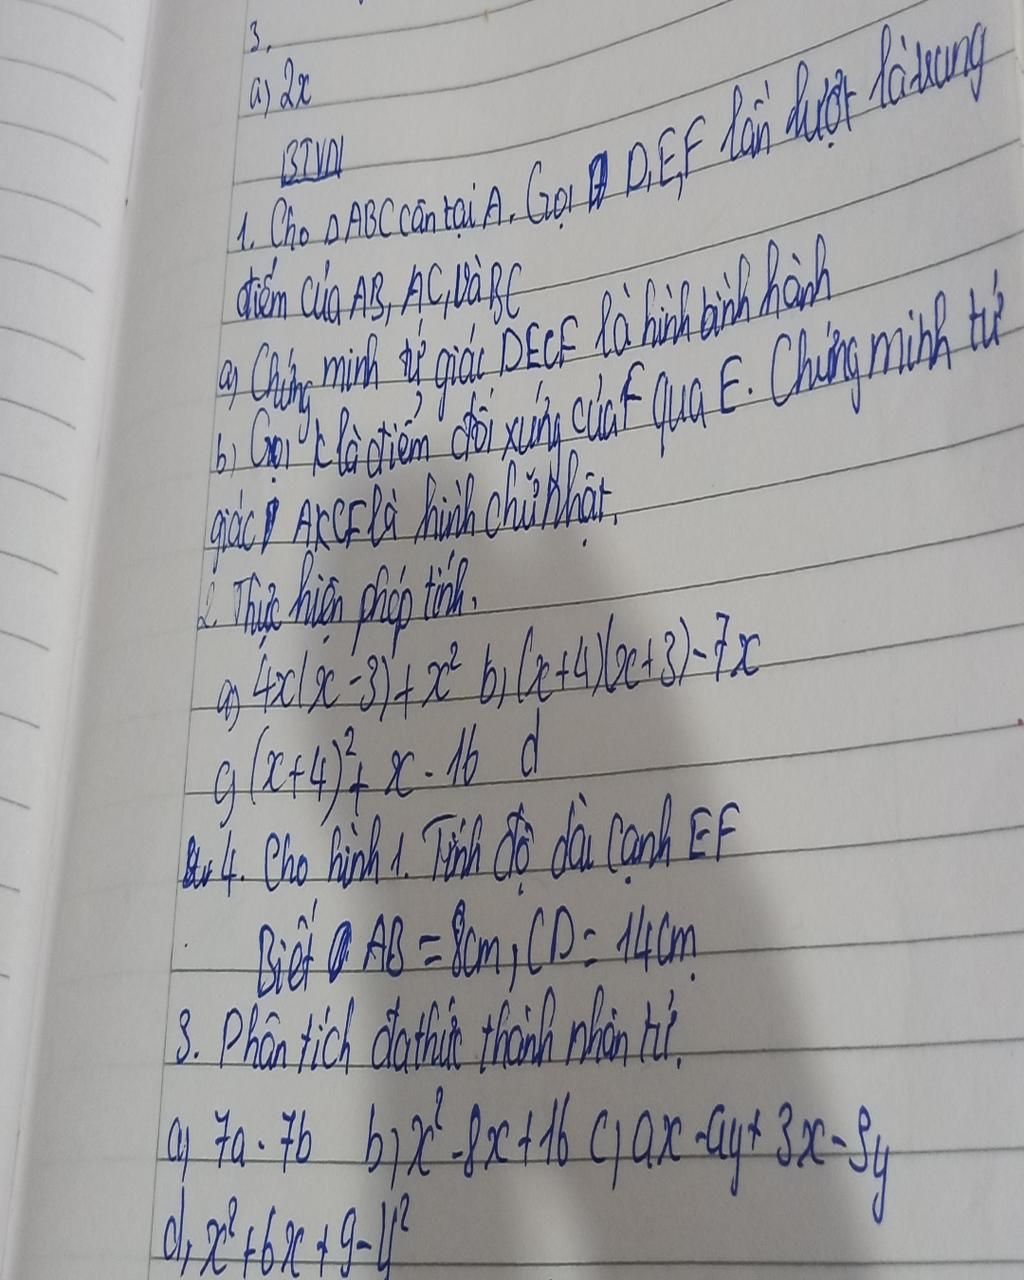 3.
a, 2x
BTVN
1. Cho △ABC cân tại A. Gọi D,E,F lần lượt là trung
điểm của AB, AC, và BC
a, Chứng minh tứ giác DECF là hình bình hành
b, Gọi K là điểm đối xứng của F qua E. Chứng minh tứ
giác AKCF là hình chữ nhật.
2. Thực hiện phép tính.
a, 4x(x-3)+x² b, (x+4)(x+3)-7x
c, (x+4)²+ x - 16 d
4. Cho hình 1. Tính độ dài cạnh EF
Biết AB = 8cm, CD = 14cm
3. Phân tích đa thức thành nhân tử.
a, 7a - 7b b, x²-8x+16 c, ax-ay+3x-3y
d, x²+6x+9-y²